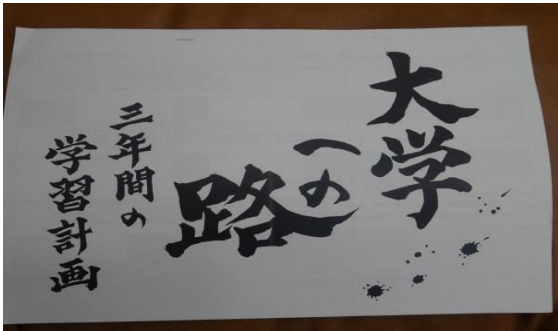 大学
への
路
三年間の
学習計画